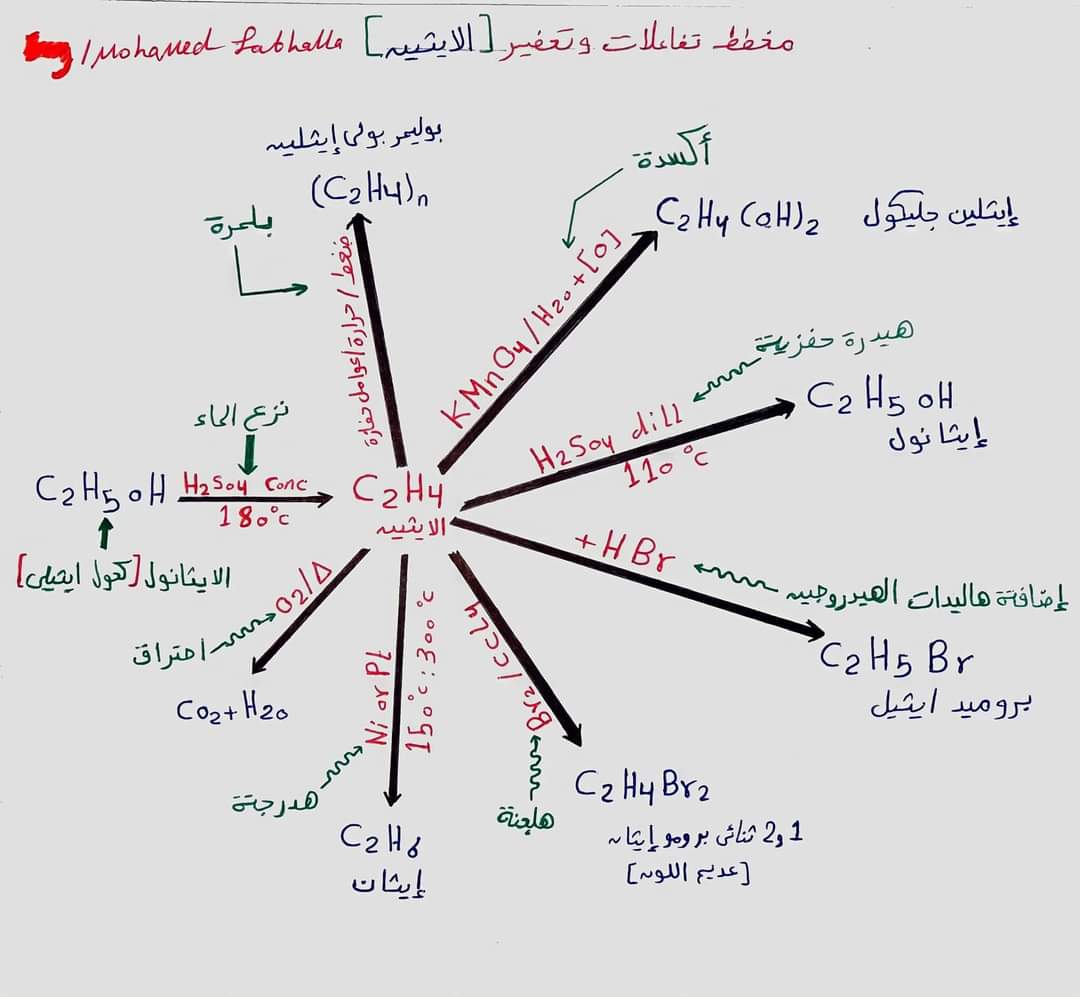 مخطط تفاعلات وتحضير [الايثيين] Mohamed Fathalla/
بوليمر بولى إيثيلين
(C2H4)n
بلمرة
ضغط / حرارة / عوامل حفازة
أكسدة
C2H4(OH)2 إيثلين جليكول
KMnO4/H2O+[O]
هيدرة حفزية
C2H5OH
إيثانول
H2SO4 dill
110°c
نزع الماء
C2H5OH H2SO4 conc C2H4
180°c
الايثين
الايثانول [كحول ايثيلى]
+HBr
إضافة هاليدات الهيدروجين
C2H5Br
بروميد ايثيل
O2/Δ
احتراق
CO2+H2O
Ni or Pt
150°c:300°c
هدرجة
C2H6
إيثان
Br2/CCL4
هلجنة
C2H4Br2
1و2 ثنائى برومو إيثان
[عديم اللون]